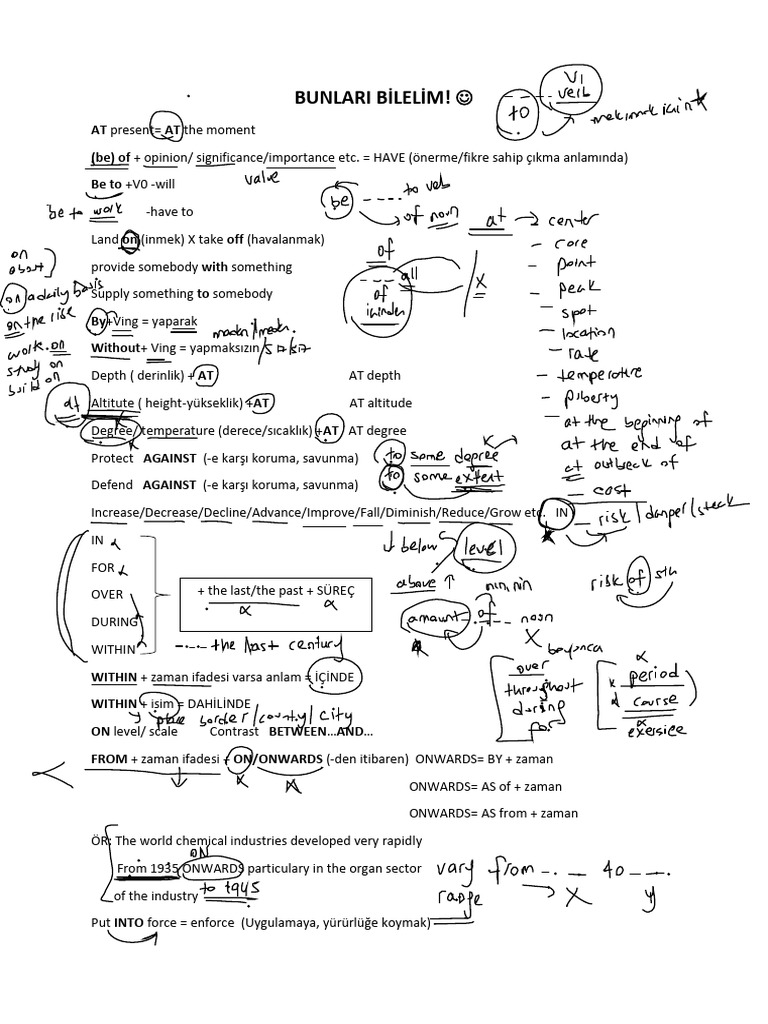 BUNLARI BİLELİM! ☺
V1
verb
to
AT present= AT the moment
(be) of + opinion/ significance/importance etc. = HAVE (önerme/fikre sahip çıkma anlamında)
value
Be to +V0 -will
be to work -have to
be
to verb
of noun
at → center
core
point
peak
spot
location
rate
temperature
puberty
at the beginning of
at the end of
at outbeak of
cost
Land on (inmek) X take off (havalanmak)
on
about
of
provide somebody with something
all
of
içinden
X
on a daily basis
Supply something to somebody
on the rise
By+Ving = yaparak
work on
study on
build on
Without+ Ving = yapmaksızın
Depth ( derinlik) + AT AT depth
at
Altitute ( height-yükseklik) +AT AT altitude
Degree/ temperature (derece/sıcaklık) +AT AT degree
Protect AGAINST (-e karşı koruma, savunma)
to some degree
Defend AGAINST (-e karşı koruma, savunma)
to some extent
Increase/Decrease/Decline/Advance/Improve/Fall/Diminish/Reduce/Grow etc. IN
risk/danger/
IN
FOR
OVER
DURING
WITHIN
+ the last/the past + SÜREÇ
the last century
↓ below
level
above ↑
risk of sth
amount of noun
X
boyunca
over
throughout
during
for
period
course
exersice
WITHIN + zaman ifadesi varsa anlam = İÇİNDE
WITHIN + isim = DAHİLİNDE
place border/country/city
ON level/ scale Contrast BETWEEN...AND...
FROM + zaman ifadesi + ON/ONWARDS (-den itibaren) ONWARDS= BY + zaman
ONWARDS= AS of + zaman
ONWARDS= AS from + zaman
ÖR: The world chemical industries developed very rapidly
ON
From 1935 ONWARDS particulary in the organ sector
of the industry to 1945
vary from to
range X y
Put INTO force = enforce (Uygulamaya, yürürlüğe koymak)